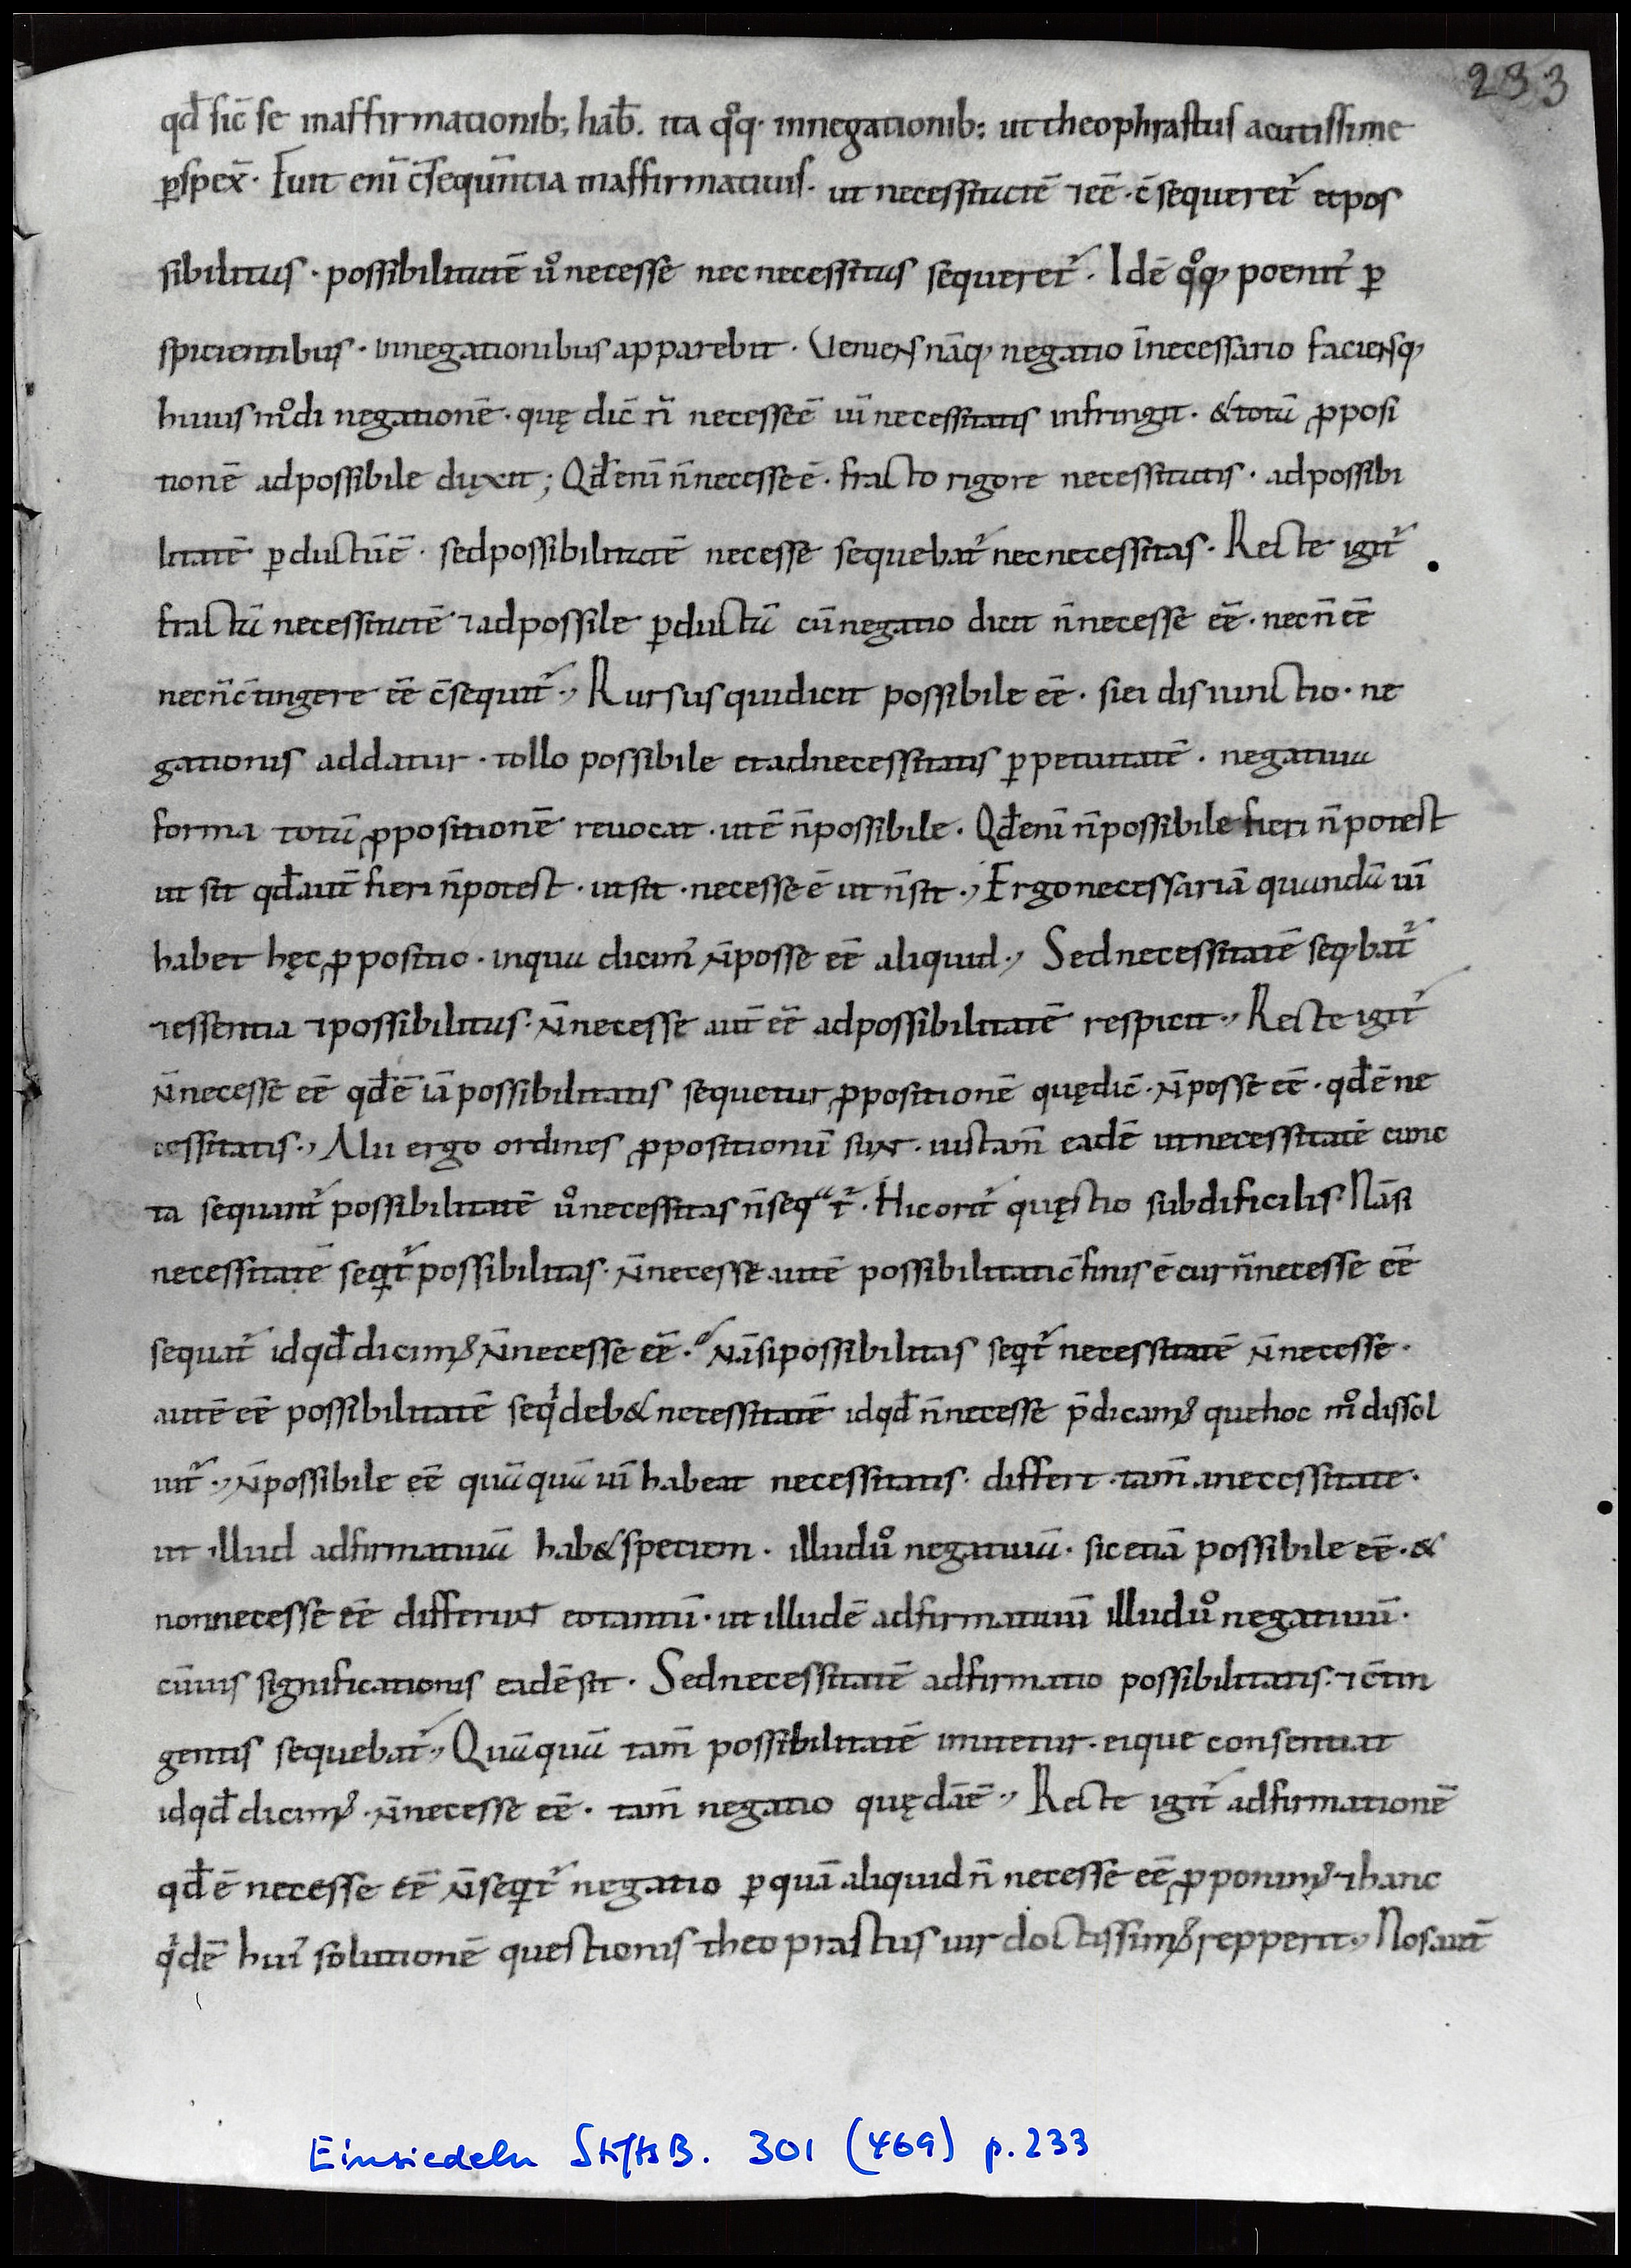 233
qd̄ sic̄ se inaffirmationib; hab̄. ita qͦq· innegationib; ut theophrastus acutissime
ꝑspex̄· Fuit enī c̄seqūntia inaffirmatiuis· ut necessitatē ⁊ eē· c̄sequeret᷑ et pos
sibilitas· possibilitatē uͦ necesse nec necessitas sequeret᷑· Idē qͦq, poenit᷑ ꝑ
spicientibus· innegationibus apparebit· Ueniens nāq, negatio īnecessario faciensq,
huius mͦdi negationē· quę dic̄ n̄ necesseeē uī necessitatis infringit· & totā ꝓposi
tionē adpossibile duxit; Qd̄ enī n̄necesse ē· fracto rigore necessitatis· adpossibi
litatē ꝑductū ē· sedpossibilitatē necesse sequebat᷑ necnecessitas· Recte igit᷑
fractū necessitatē ⁊ adpossile ꝑductū cū negatio dicit n̄necesse eē· necn̄ eē
necn̄ c̄tingere eē c̄sequit᷑· Rursus quidicit possibile eē· siei disiunctio· ne
gationis addatur· tollo possibile et adnecessitatis ꝑpetuitatē· negatiua
forma totā ꝓpositionē reuocat· ut ē n̄possibile· Qd̄ enī n̄possibile fieri n̄potest
ut sit qd̄ autē fieri n̄potest· ut sit· necesse ē ut n̄sit· Ergo necessariā quandā uī
habet hęc ꝓpositio· inqua dicim᷒ n̄posse eē aliquid· Sednecessitatē seq,bat᷑
⁊ essentia ⁊ possibilitas· n̄necesse aut̄ eē adpossibilitatē respicit· Recte igit᷑
n̄necesse eē qd̄ ē iā possibilitatis sequetur ꝓpositionē quędic̄· n̄posse eē· qd̄ ē ne
cessitatis· Alii ergo ordines ꝓpositionū sunt· iuxtam̄ eadē ut necessitatē cunc
ta sequant᷑ possibilitatē uͦ necessitas n̄seqᵃt᷑· Hicorit᷑ quęstio subdificilis Nāsi
necessitatē seqt᷑ possibilitas· n̄necesse autē possibilitatic̄finis ē cur n̄necesse eē
sequat᷑ idqd̄ dicim᷒ n̄necesse eē· nāsipossibilitas seqt᷑ necessitatē n̄necesse·
autē eē possibilitatē seqͥ deb& necessitatē idqd̄ n̄necesse p̄dicam᷒ quehoc mͦ dissol
uit᷑· n̄possibile eē quāquā uī habeat necessitatis· differt· tam̄ anecessitate·
ut illud adfirmatiuā hab& speciem· illuduͦ negatiuā· sic etiā possibile eē· &
nonnecesse eē differunt eotantū· ut illudē adfirmatiuū illuduͦ negatiuū·
cūuis significationis eadēsit· Sednecessitatē adfirmatio possibilitatis· ⁊ c̄tin
gentis sequebat᷑· Quāquā tam̄ possibilitatē imitetur· eique consentiat
idqd̄ dicim᷒· n̄necesse eē· tam̄ negatio quędā ē· Recte igit᷑ adfirmationē
qd̄ ē necesse eē n̄seqt᷑ negatio ꝑquā aliquid n̄ necesse eē ꝓponim᷒· ⁊ hanc
qͥdē hui᷒ solutionē questionis theoprastus uir doctissim᷒ repperit· Nos aut̄
Einsiedeln StiftsB. 301 (469) p. 233